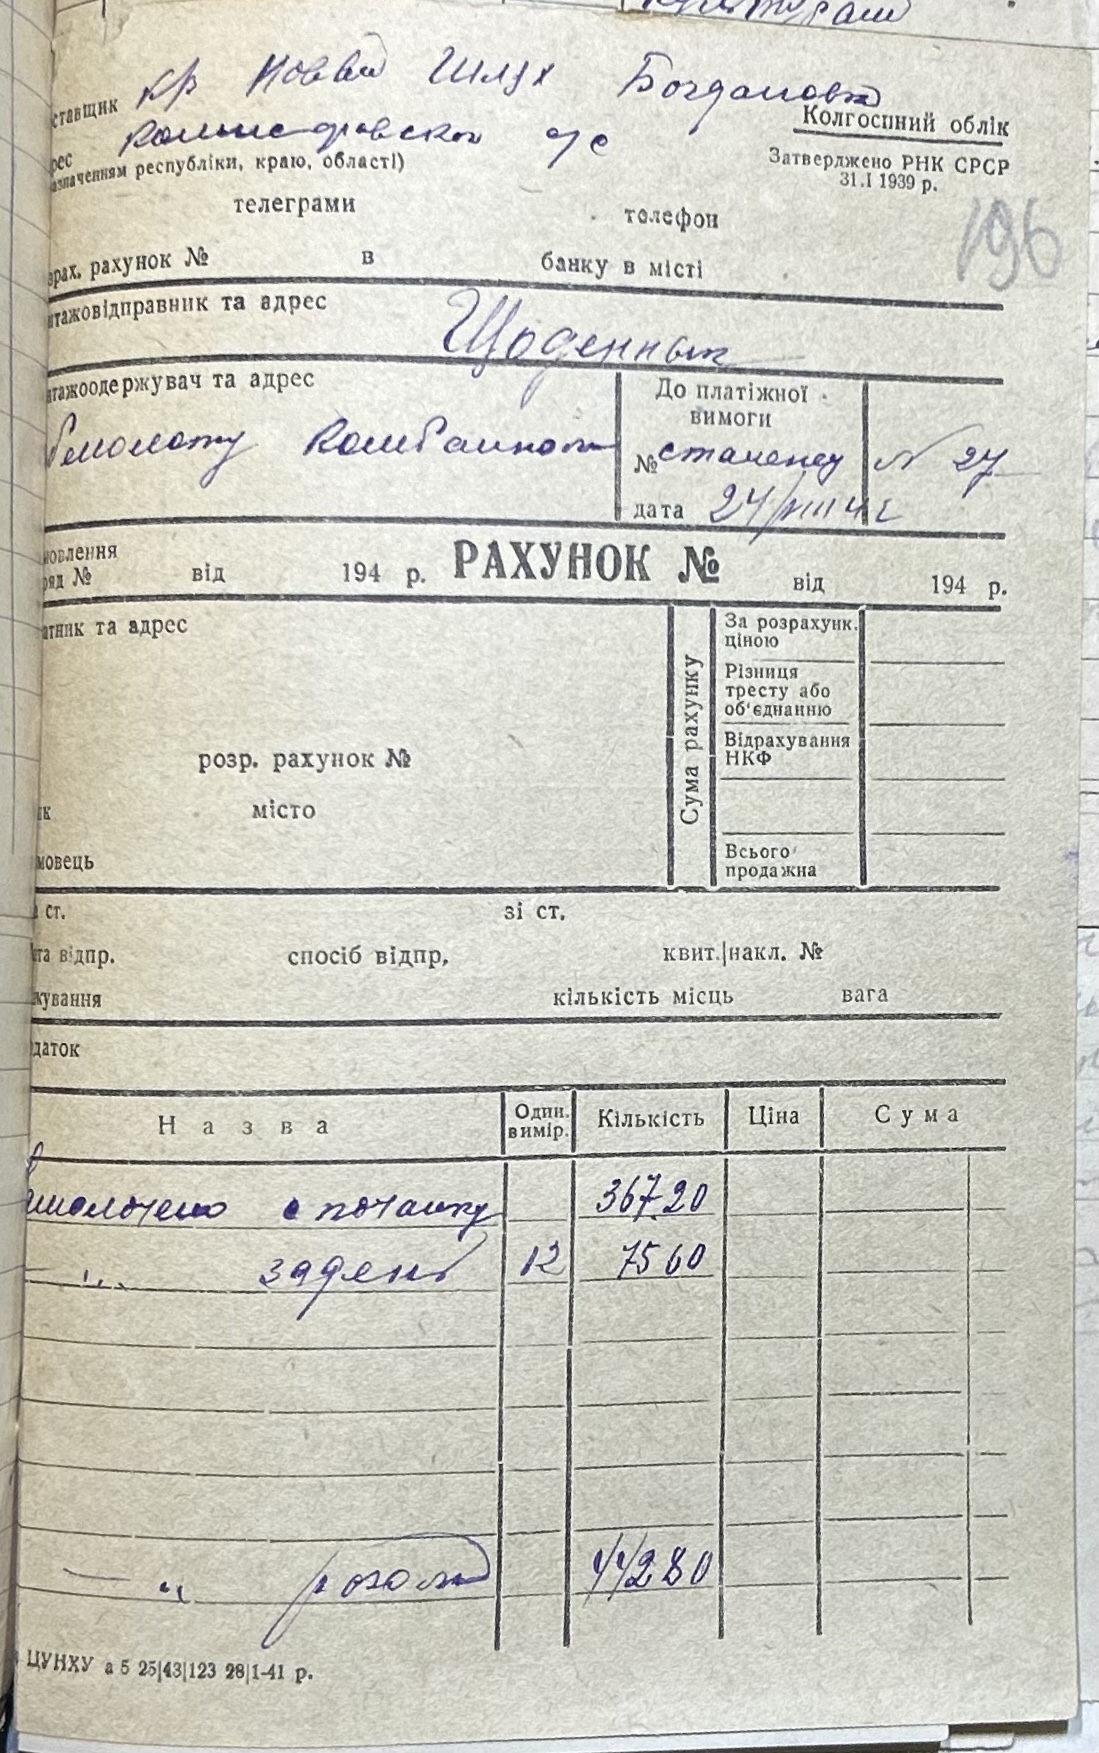 кр Новый Шлух Богдановка
ставщик
Колгоспний облік
рес
с/с
азначенням республіки, краю, області)
Затверджено РНК СРСР
31.I 1939 р.
телеграми телефон
196
зрах. рахунок № в банку в місті
нтажовідправник та адрес
Щоденнык
нтажоодержувач та адрес
До платіжної
вимоги
обмолоту Комбайном
№ станему № 27
дата 24/VIII 41 г
мовлення
ряд № від 194 р. РАХУНОК № від 194 р.
атник та адрес
Сума рахунку
За розрахунк.
ціною
Різниця
тресту або
об'єднанню
Відрахування
НКФ
розр. рахунок №
ик місто
мовець
Всього
продажна
а ст. зі ст.
ата відпр. спосіб відпр, квит.|накл. №
кування кількість місць вага
одаток
Назва Один. вимір. Кількість Ціна Сума
змолочено с початку 367.20
— ,,, за день 12 75 60
— „ разом 442 80
ЦУНХУ а 5 25|43|123 28|1-41 р.